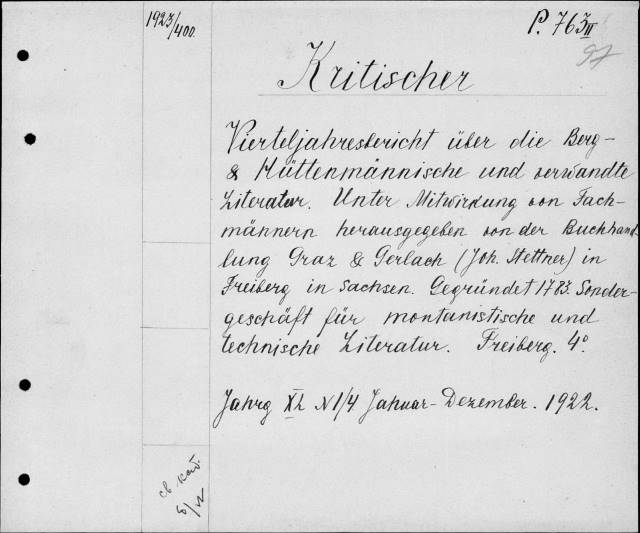 1923/400.
P. 763 II
97
Kritischer
Vierteljahresbericht über die Berg-
& Hüttenmännische und verwandte
Literatur. Unter Mitwirkung von Fach-
männern herausgegeben von der Buchhand-
lung Graz & Gerlach (Joh. Stettner) in
Freiberg in Sachsen. Gegründet 1783. Sonder-
geschäft für montanistische und
technische Literatur. Freiberg. 4°.
Jahrg XL N 1/4 Januar-Dezember. 1922.
св. кат.